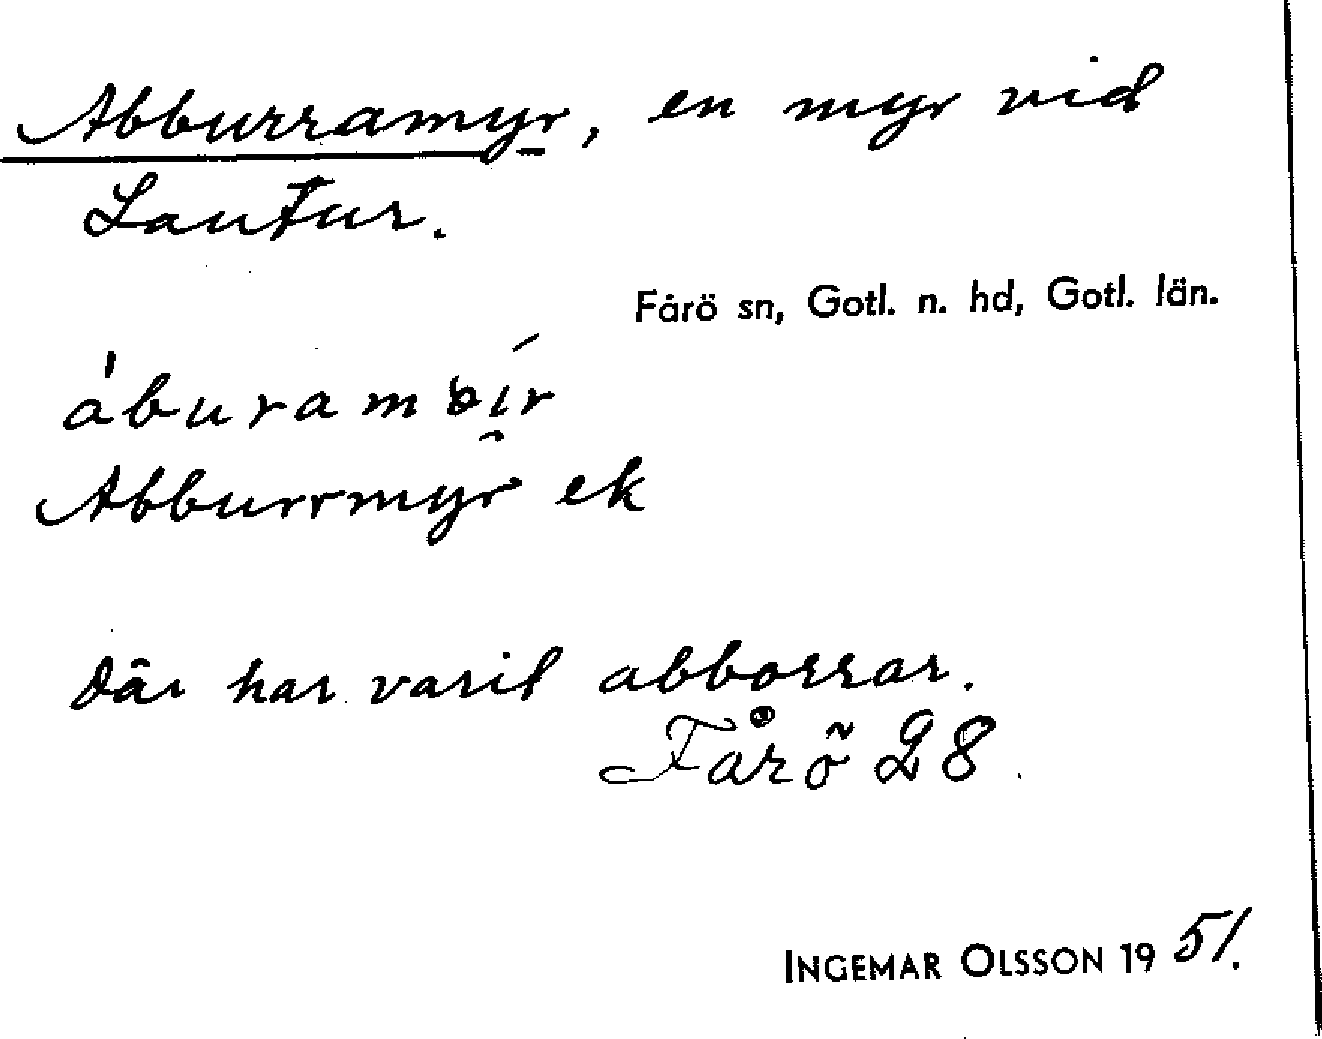 Abburramyr, en myr vid
Lautur.
Fårö sn, Gotl. n. hd, Gotl. län.
Abburrmyr ek
där har varit abborrar.
Fårö 28.
INGEMAR OLSSON 1951.